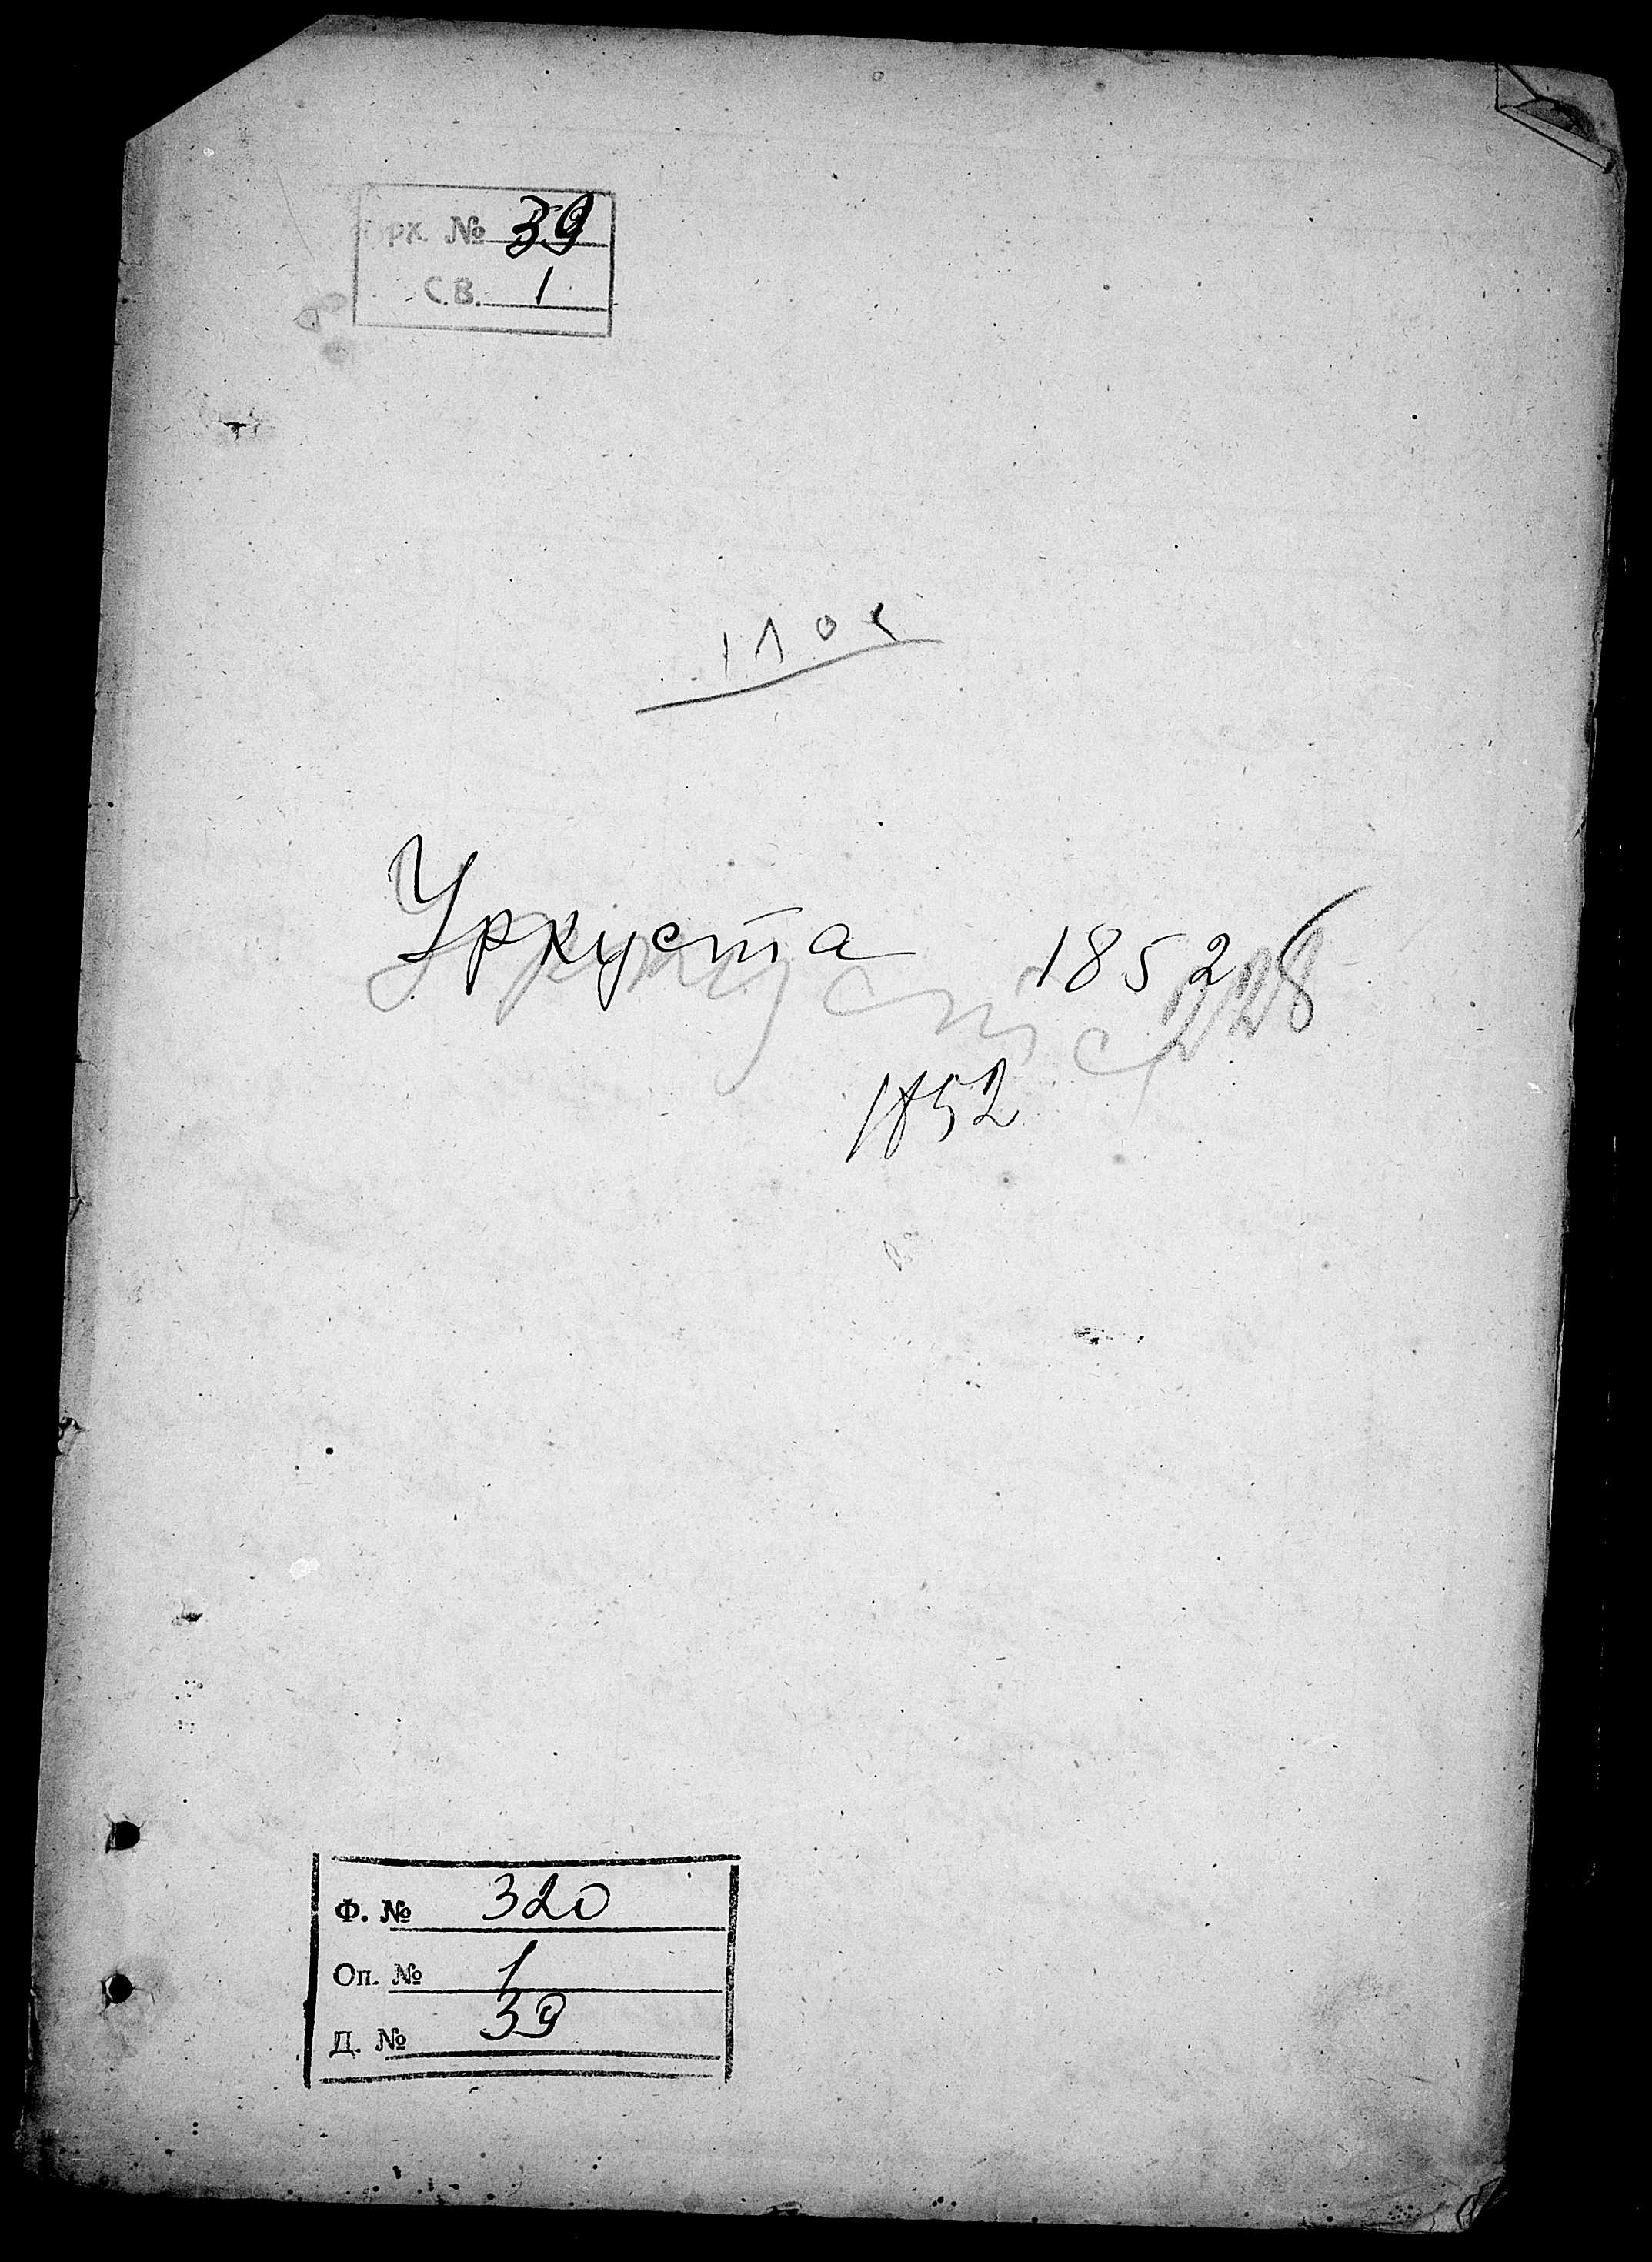 Арх. № 39
С.В. 1
١٨٥٢
Уркуста 1852
Уркуста 228
1852
Ф. № 320
Оп. № 1
Д. № 39